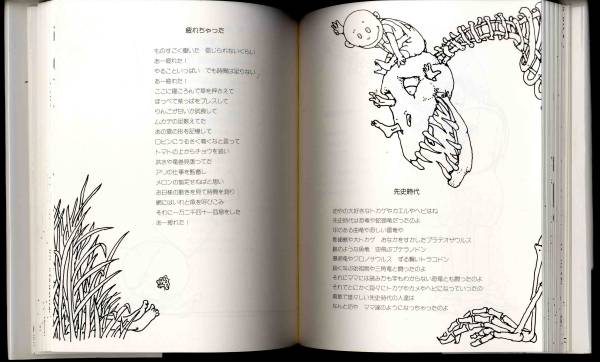 疲れちゃった
ものすごく働いた 信じられないくらい
あー疲れた!
やることいっぱい でも時間は足りない
あー疲れた!
ここに寝ころんで草を押さえて
ほっぺで葉っぱをプレスして
りんごが甘いか試食して
ムカデの足数えてた
あの雲の形を記憶して
ロビンにうるさく鳴くなと言って
トマトの上からチョウを追い
洪水や竜巻見張ってた
アリの仕事を監督し
メロンの剪定せねばと思い
お日様の動きを見て時間を測り
網にはいれと魚を呼びこみ
それに一万二千四十一回息をした
あー疲れた!
先史時代
坊やの大好きなトカゲやカエルやヘビはね
先史時代は恐竜や蛇頸竜だったのよ
牙のある歯竜や恐しい雷竜や
巨大トカゲ おなかをすかしたプラテオザウルス
龍のような魚竜 空飛ぶプテラノドン
暴君竜やブロノサウルス ずる賢いトラコドン
鋭くなぶ
や三角竜と闘ったのよ
それにママには読み方も字もわからない恐竜とも闘ったのよ
それでとにかく段々にトカゲやカメやヘビになっていったの
勇敢で雄々しい先史時代の人達は
なんと坊や ママ達のようになっちゃったのよ